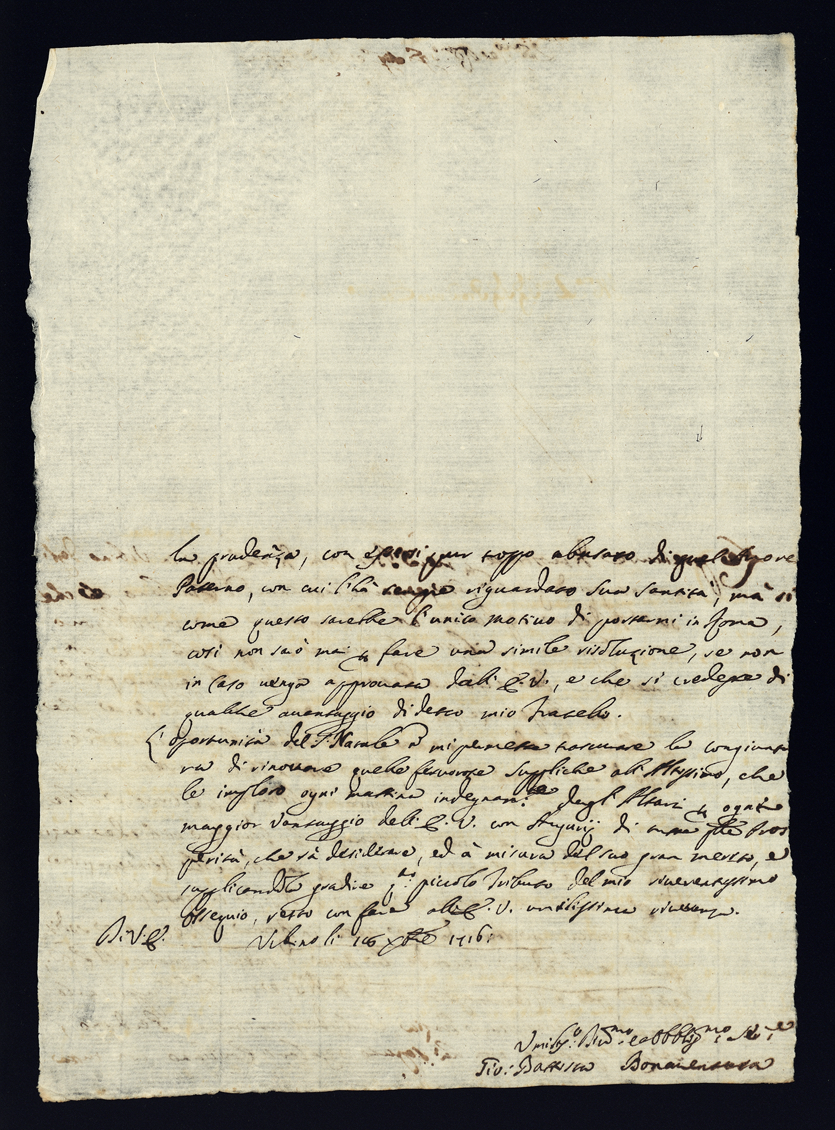 la prudenza, con essersi pur troppo abusato di quel Amore
Paterno, con cui l'hà sempre riguardato Sua Santità, mà si
come questo sarebbe l'unico motivo di portarmi in Roma,
così non sarò mai p fare una simile risoluzione, se non
in caso venga approvata dall'E.V., e che si credesse di
qualche avantaggio di detto mio Fratello.
L'oportunità del S. Natale ñ mi permette trascurare la congiuntu
ra di rinovare quelle fervorose suppliche all'Altissimo, che
le imploro ogni mattina indegnam.te degl'Altari p ogni
maggior vantaggio dell'E.V. con Augurij di tutte Pros
perità, che sà desiderare, ed à misura del suo gran merito, e
supplicandola gradire q.to piccolo tributo del mio riverentissimo
ossequio, resto con fare all'E.V. umilissima riverenza.
Di V.E. Urbino li 16 Xbre 1716.
Umiliss.o Div.mo e Obblig.mo Ser.e
Gio: Battista Bonaventura